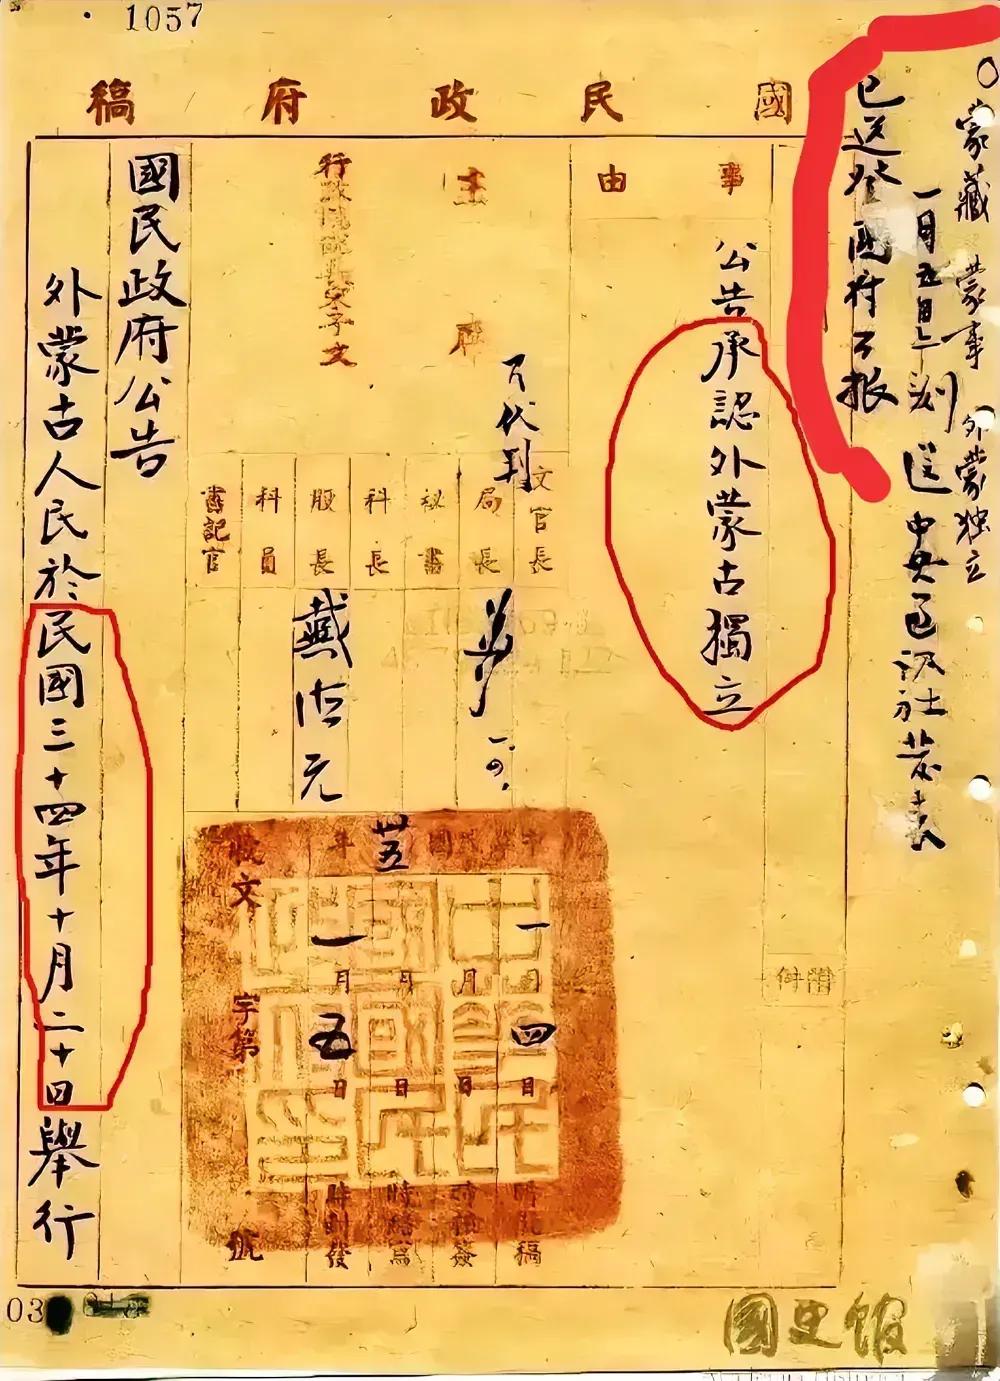 1057
國民政府稿
蒙藏 蒙事 外蒙独立
一月五日上刻送中央通訊社發表
已送登國府公报
事由
公告承認外蒙古獨立
附件
主席
行政院院長宋子文
文官長
局長
秘書
科長
股長
科員
書記官
戴
元
一.
中華民國卅五年
一月四日
月日
月日
一月五日
時擬稿
時核簽
時繕寫
時封發
收文字第號
國民政府公告
外蒙古人民於民國三十四年十月二十日舉行
03
國史館
Academia Historica